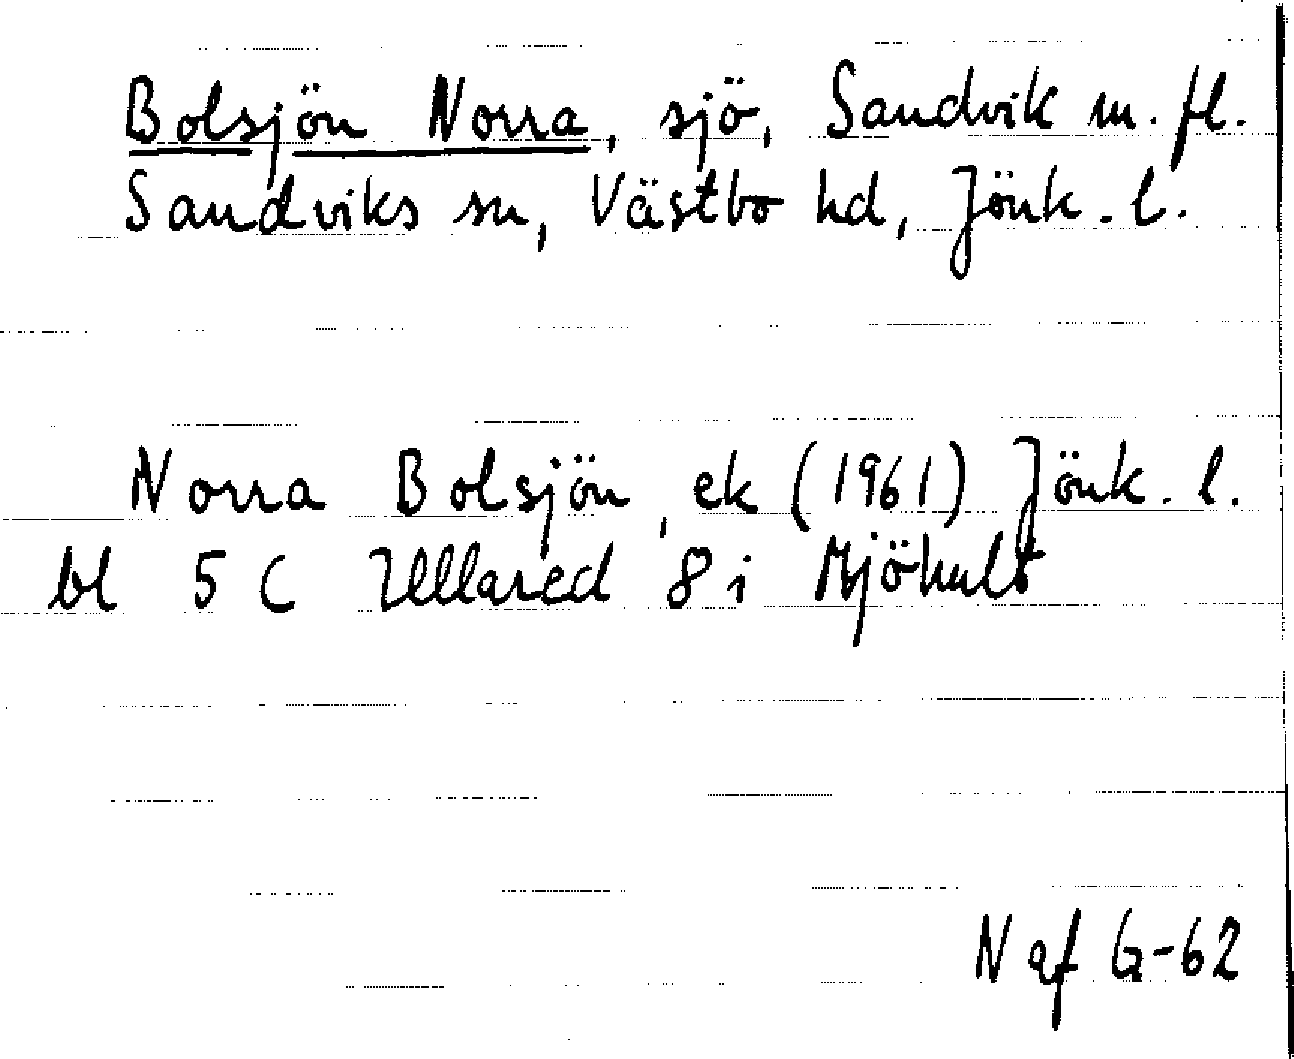 Bolsjön Norra, sjö, Sandvik m. fl.
Sandviks sn, Västbo hd, Jönk. l.
Norra Bolsjön, ek (1961) Jönk. l.
bl 5 C Ullared 8 i Mjöhult
N af G-62